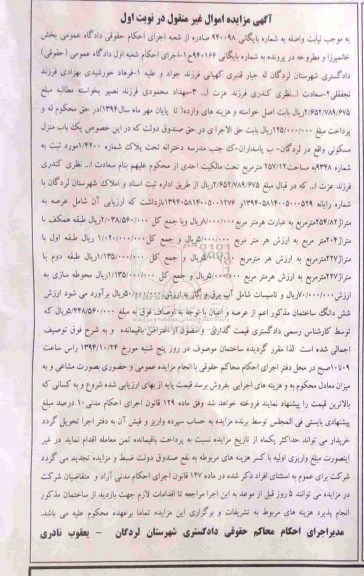 آگهی مزایده اموال غیر منقول در نوبت اول
به موجب نیابت واصله به شماره بایگانی ۹۴۰۰۹۸ صادره از شعبه اجرای احکام حقوقی دادگاه عمومی بخش
خانمیرزا و مطروحه در پرونده به شماره بایگانی ۹۴۰۱۶۶ج۱-اجرای احکام شعبه اول دادگاه عمومی (حقوقی)
دادگستری شهرستان لردگان له جبار قنبری کهیانی فرزند جواد و علیه ۱-فرهاد خورشیدی بهزادی فرزند
نجفقلی۲-سعادت ا...نظری کندری فرزند عزت ا... ۳-مهداد محمودی فرزند نصیر بخواسته مطالبه مبلغ
۲/۶۵۲/۷۸۹/۶۷۵ریال بابت اصل خواسته و هزینه های وارده( تا پایان مهر ماه سال۱۳۹۴)در حق محکوم له و
پرداخت مبلغ ۱۲۵/۰۰۰/۰۰۰ریال بابت حق الاجرای در حق صندوق دولت که در این خصوص یک باب منزل
مسکونی واقع در لردگان- ب پاسداران-ک جنب مدرسه دخترانه تحت پلاک شماره ۱/۴۲۰۰...مورد ثبت به
شماره ۹۳۴۸به مساحت ۲۵۷/۱۲ مترمربع تحت مالکیت احدی از محکوم علیهم بنام سعادت ا... نظری کندری
فرزند عزت ا... که در قبال مبلغ ۲/۶۵۲/۷۸۹/۶۷۵ریال از طریق اداره ثبت اسناد و املاک شهرستان لردگان با
شماره نامه ۱۳۹۴۰۵۸۱۴۰۰۵۰۰۰۵۲۹و ۱۳۹۴۰۵۸۱۴۰۰۵۰۰۱۲۷۶بازداشت که ارزیابی آن شامل عرصه به
متراژ۲۵۴/۸۲مترمربع به عبارت هرمتر مربع ۸/۰۰۰/۰۰۰ریال وبا جمع کل ۲/۰۳۸/۵۶۰/۰۰۰ریال طبقه همکف با
متراژ۲۰۴متر مربع به ارزش هر متر مربع ۵/۰۰۰/۰۰۰ریال و جمع کل ۱/۰۲۰/۰۰۰/۰۰۰ ریال طبقه اول با
متراژ۲۲۷مترمربع به ارزش هرمتر مربع ۵/۰۰۰/۰۰۰ریال و جمع کل ۱/۱۳۵/۰۰۰/۰۰۰ریال طبقه دوم با
متراژ۲۲۷مترمربع به ارزش هر متر مربع ۵/۰۰۰/۰۰۰ریال و جمع کل ۱/۱۳۵/۰۰۰/۰۰۰ریال محوطه سازی به
ارزش ۷۰/۰۰۰/۰۰۰ریال و تاسیسات شامل آب برق و گاز به ارزش ۵۰/۰۰۰/۰۰۰ریال برآورد می شود ارزش
شش دانگ ساختمان مذکور اعم از عرصه و اعیان با توجه به اوصاف فوق به مبلغ ۵/۴۴۸/۵۶۰/۰۰۰ریال که
توسط کارشناس رسمی دادگستری قیمت گذاری و مصون از اعتراض باقیمانده و به شرح فوق توصیف
اجمالی شده است لذا مقرر گردیده ساختمان موصوف در روز پنج شنبه مورخ ۱۳۹۴/۱۰/۲۴ راس ساعت
۹-۱۰صبح در محل دفتر اجرای احکام محاکم حقوقی با انجام مزایده عمومی و حضوری بصورت مشاعی و به
میزان معادل محکوم به و هزینه های اجرایی بفروش برسد قیمت پایه از بهای ارزیابی شده شروع و به کسانی که
بالاترین قیمت را پیشنهاد نمایند فروخته خواهد شد وفق ماده ۱۲۹ قانون اجرای احکام مدنی ۱۰ درصد مبلغ
پیشنهادی بایستی فی المجلس توسط برنده مزایده به حساب سپرده واریز و فیش آن به دفتر اجرا تحویل گردد
خریدار می تواند حداکثر یکماه از تاریخ مزایده نسبت به پرداخت باقیمانده ثمن معامله اقدام نماید در غیر
اینصورت مبلغ واریزی اولیه با کسر هزینه های مربوطه به نفع صندوق دولت ضبط و مزایده تجدید می گردد
شرکت برای عموم به استثنای افراد ذکر شده در ماده ۱۲۷ قانون اجرای احکام مدنی آزاد و متقاضیان شرکت
در مزایده می توانند ۵ روز قبل از موعد به این اجرا مراجعه تا اقدامات لازم جهت بازدید از ساختمان مذکور
انجام پذیرد هزینه های مربوط به تشریفات و برگزاری این مزایده تماما برعهده محکوم علیه می باشد.
مدیراجرای احکام محاکم حقوقی دادگستری شهرستان لردگان – یعقوب نادری